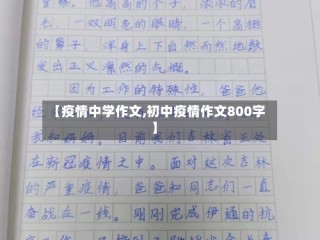 着。他高高的个子，浓浓的眉
毛，一双明亮的眼睛，一个高挺
的鼻子，浑身上下自然而然地散
发出正义凛然的气概。
因为工作的特殊性，爸爸他
【疫情中学作文,初中疫情作文800字
】
我和奶奶。目前我们吉林省正处
在新冠疫情之中。面对这次吉林
的严重疫情，爸爸和同志们一直
奋战在一线。刚刚完成伊通的抗